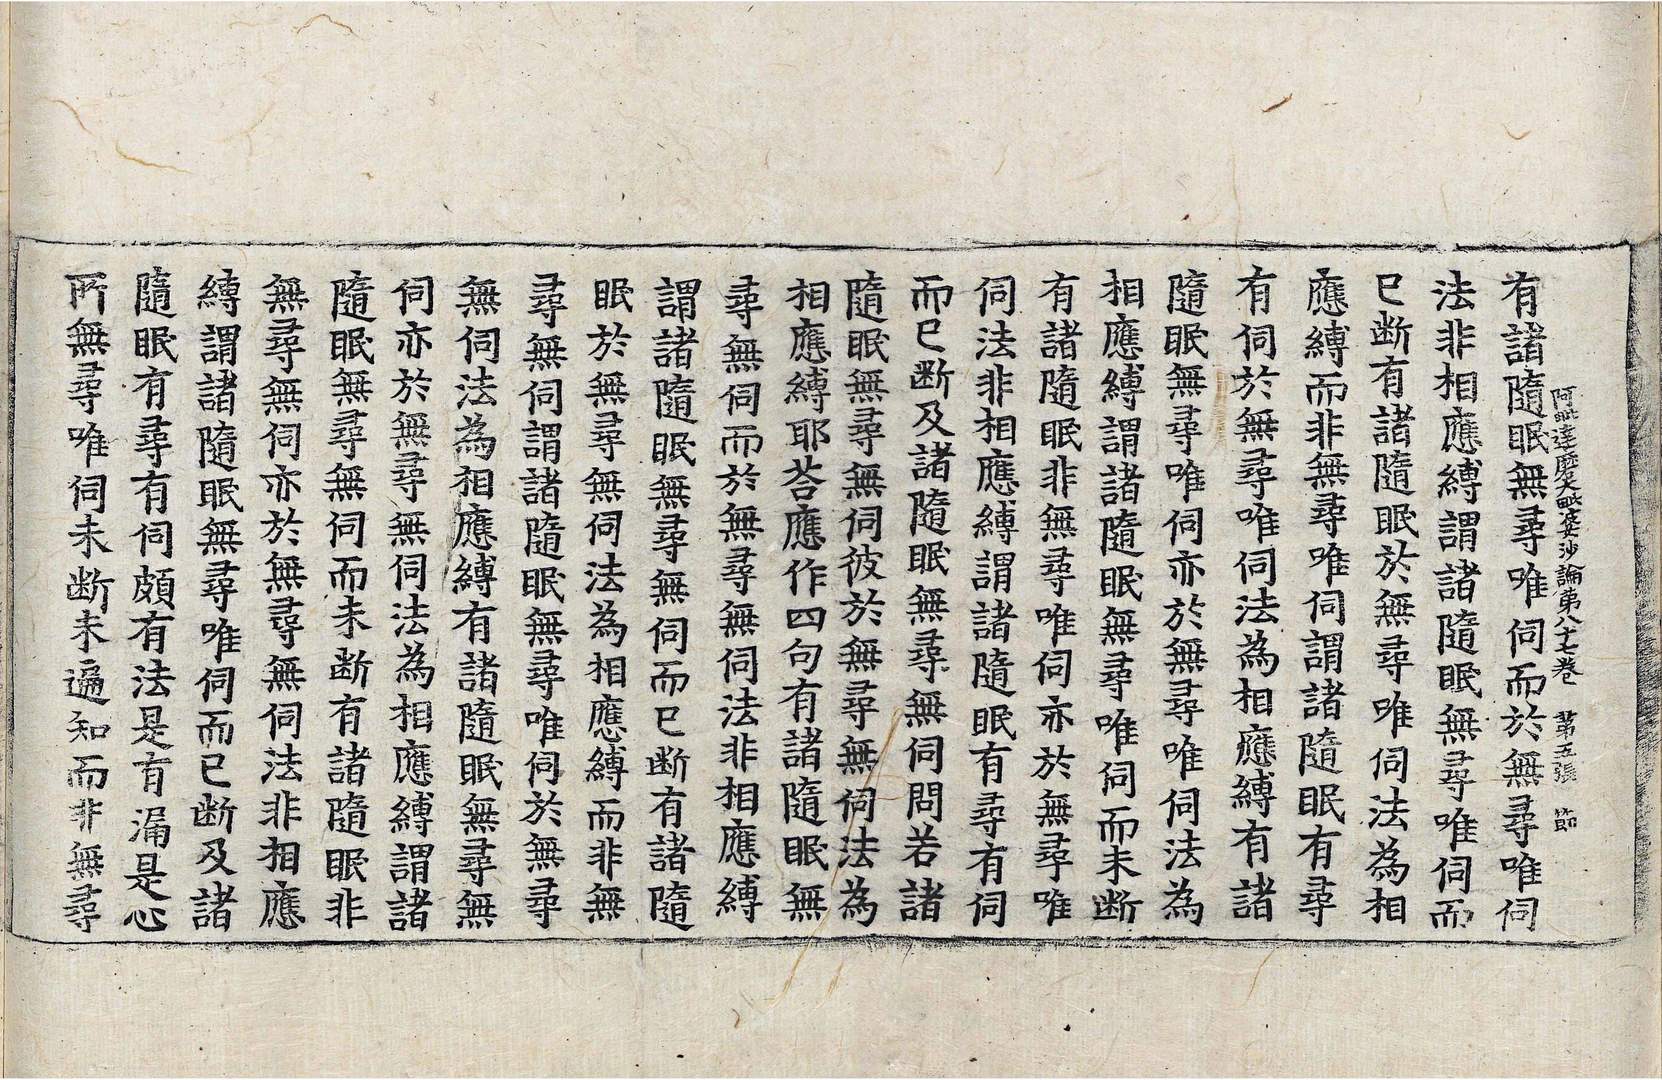 阿毗達磨大毗婆沙論第八十七卷 第五張 節
有諸隨眠無尋唯伺而於無尋唯伺
法非相應縛謂諸隨眠無尋唯伺而
已断有諸隨眠於無尋唯伺法為相
應縛而非無尋唯伺謂諸隨眠有尋
有伺於無尋唯伺法為相應縛有諸
隨眠無尋唯伺亦於無尋唯伺法為
相應縛謂諸隨眠無尋唯伺而未断
有諸隨眠非無尋唯伺亦於無尋唯
伺法非相應縛謂諸隨眠有尋有伺
而已断及諸隨眠無尋無伺問若諸
隨眠無尋無伺彼於無尋無伺法為
相應縛耶荅應作四句有諸隨眠無
尋無伺而於無尋無伺法非相應縛
謂諸隨眠無尋無伺而已断有諸隨
眠於無尋無伺法為相應縛而非無
尋無伺謂諸隨眠無尋唯伺於無尋
無伺法為相應縛有諸隨眠無尋無
伺亦於無尋無伺法為相應縛謂諸
隨眠無尋無伺而未断有諸隨眠非
無尋無伺亦於無尋無伺法非相應
縛謂諸隨眠無尋唯伺而已断及諸
隨眠有尋有伺頗有法是有漏是心
所無尋唯伺未断未遍知而非無尋